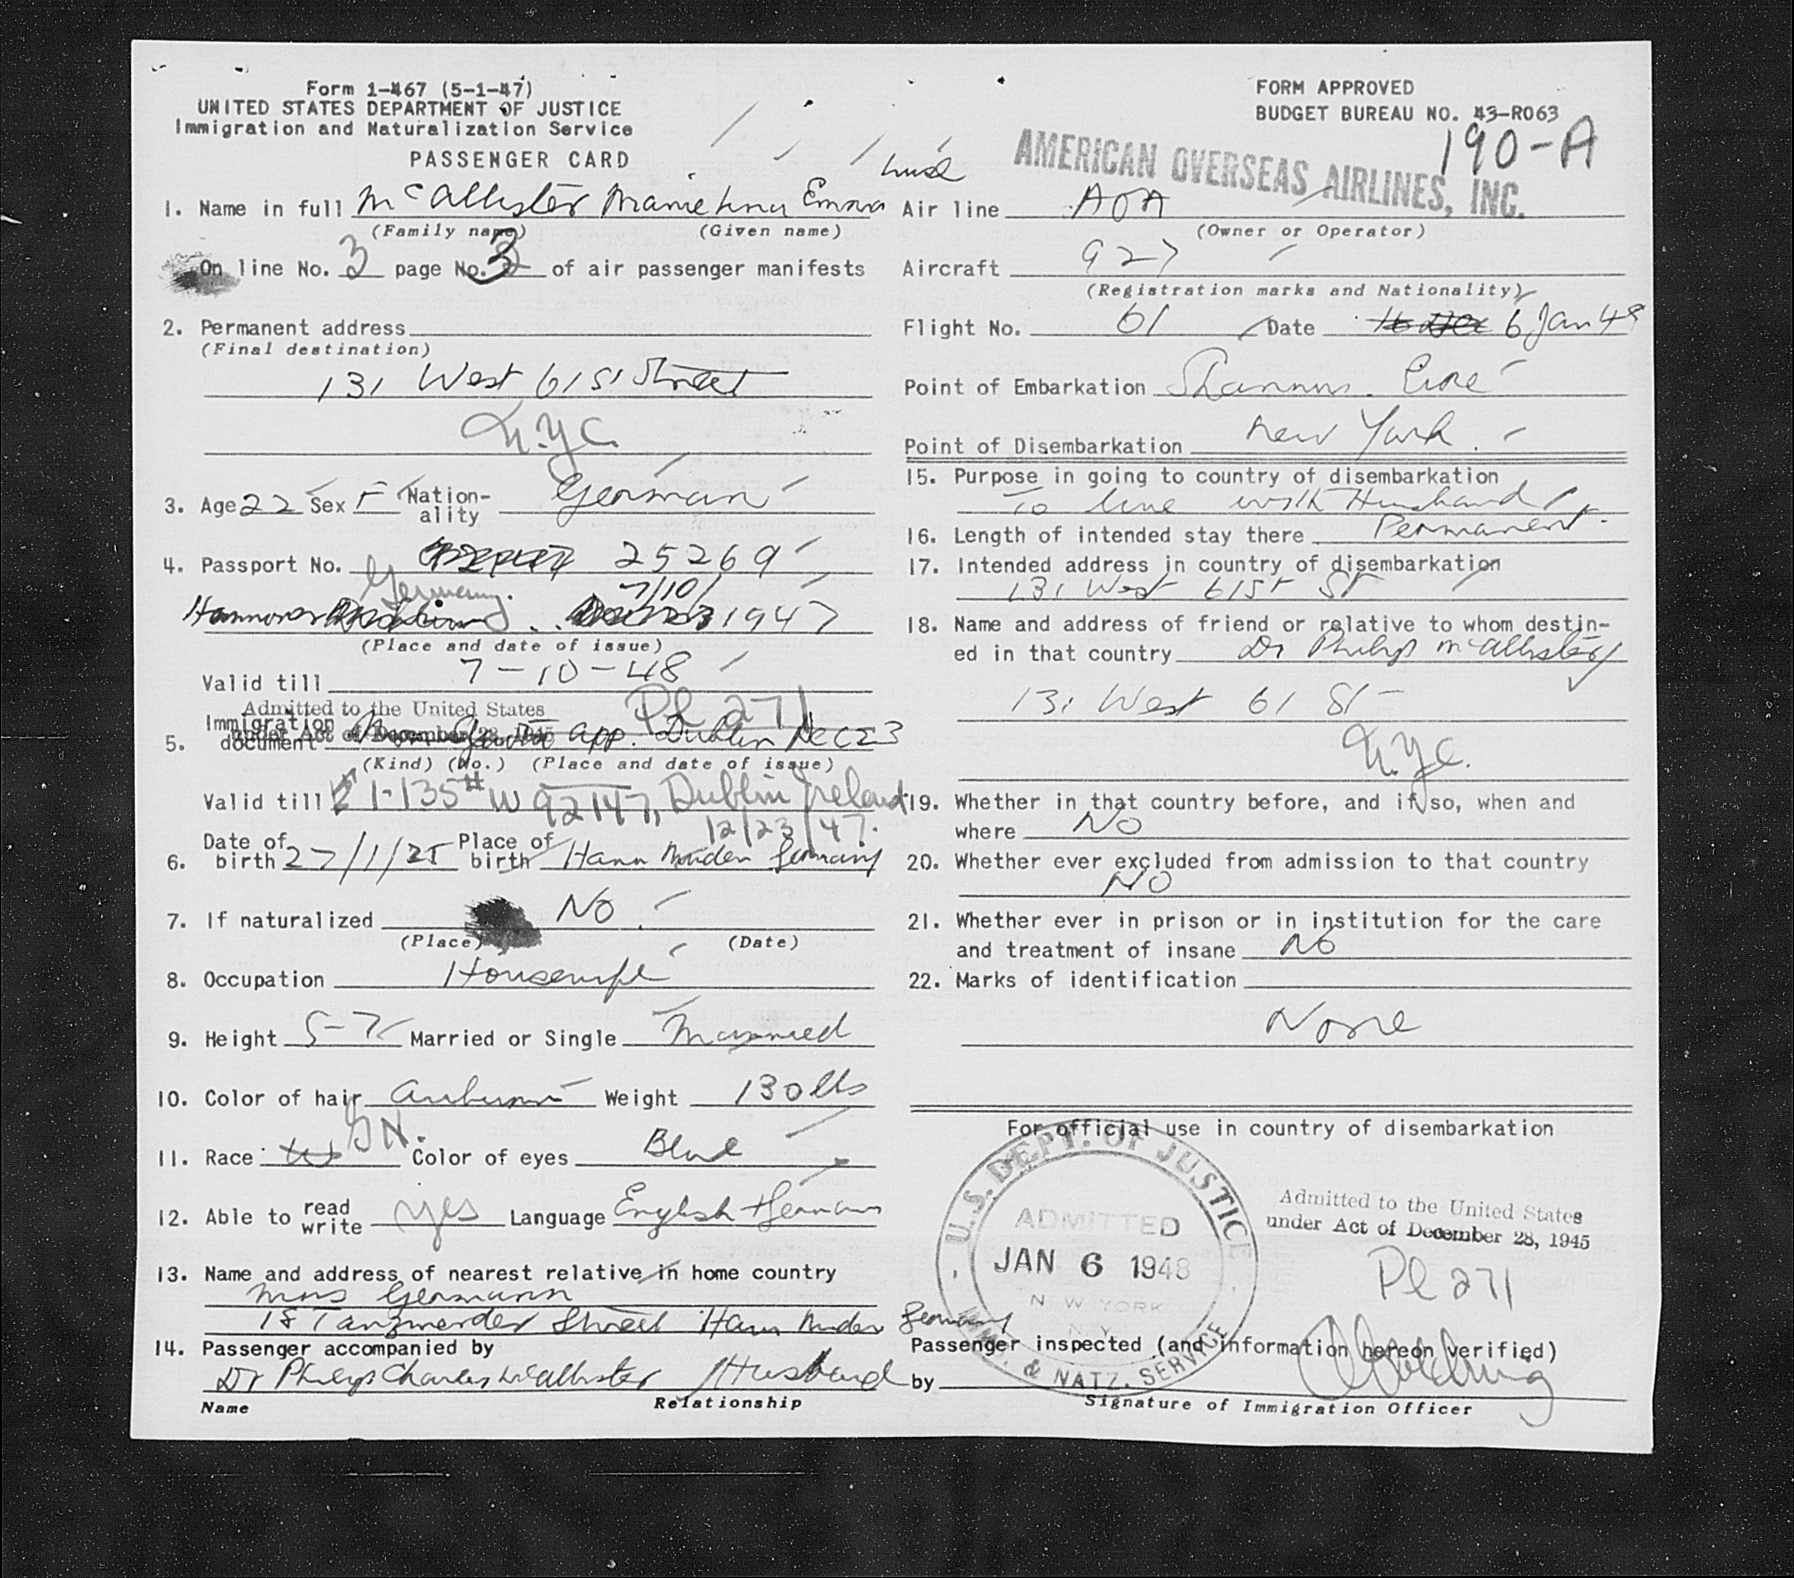 Form 1-467 (5-1-47)
UNITED STATES DEPARTMENT OF JUSTICE
Immigration and Naturalization Service
PASSENGER CARD
FORM APPROVED
BUDGET BUREAU NO. 43-R063
190-A
AMERICAN OVERSEAS AIRLINES, INC.
1. Name in full McAllister Emma
(Family name) (Given name)
On line No. 3 page No. 3 of air passenger manifests
2. Permanent address
(Final destination)
131 West 61st Street
N.Y.C.
3. Age 22 Sex F Nation-ality German
4. Passport No. 25269
Germany.
7/10/
Hannover 1947
(Place and date of issue)
Valid till 7-10-48
Admitted to the United States
under Act of December 28, 1945
Pl 271
5. Immigration document app. Dublin Dec 23
(Kind) (No.) (Place and date of issue)
Valid till 1-135 # W 92147, Dublin Ireland
12/23/47.
6. Date of birth 27/1/25 Place of birth Hann Munden Germany
7. If naturalized No.
(Place) (Date)
8. Occupation Housewife
9. Height 5-7 Married or Single Married
10. Color of hair auburn Weight 130 lbs
GN.
11. Race W Color of eyes Blue
12. Able to read write yes Language English + German
13. Name and address of nearest relative in home country
Mrs Germann
18 Street Hann Munden Germany
14. Passenger accompanied by
Dr Philip Charles McAllister Husband
Name Relationship
Air line AOA
(Owner or Operator)
Aircraft 927
(Registration marks and Nationality)
Flight No. 61 Date 6 Jan 48
Point of Embarkation Shannon. Eire
Point of Disembarkation New York.
15. Purpose in going to country of disembarkation
To live with Husband
16. Length of intended stay there Permanent.
17. Intended address in country of disembarkation
131 West 61st St
18. Name and address of friend or relative to whom destin-
ed in that country Dr Philip McAllister
131 West 61 St
N.Y.C.
19. Whether in that country before, and if so, when and
where No
20. Whether ever excluded from admission to that country
No
21. Whether ever in prison or in institution for the care
and treatment of insane No
22. Marks of identification
None
For official use in country of disembarkation
U.S. DEPT. OF JUSTICE
ADMITTED
JAN 6 1948
NEW YORK
N.Y.
IMM. & NATZ. SERVICE
Admitted to the United States
under Act of December 28, 1945
Pl 271
Passenger inspected (and information hereon verified)
by
Signature of Immigration Officer